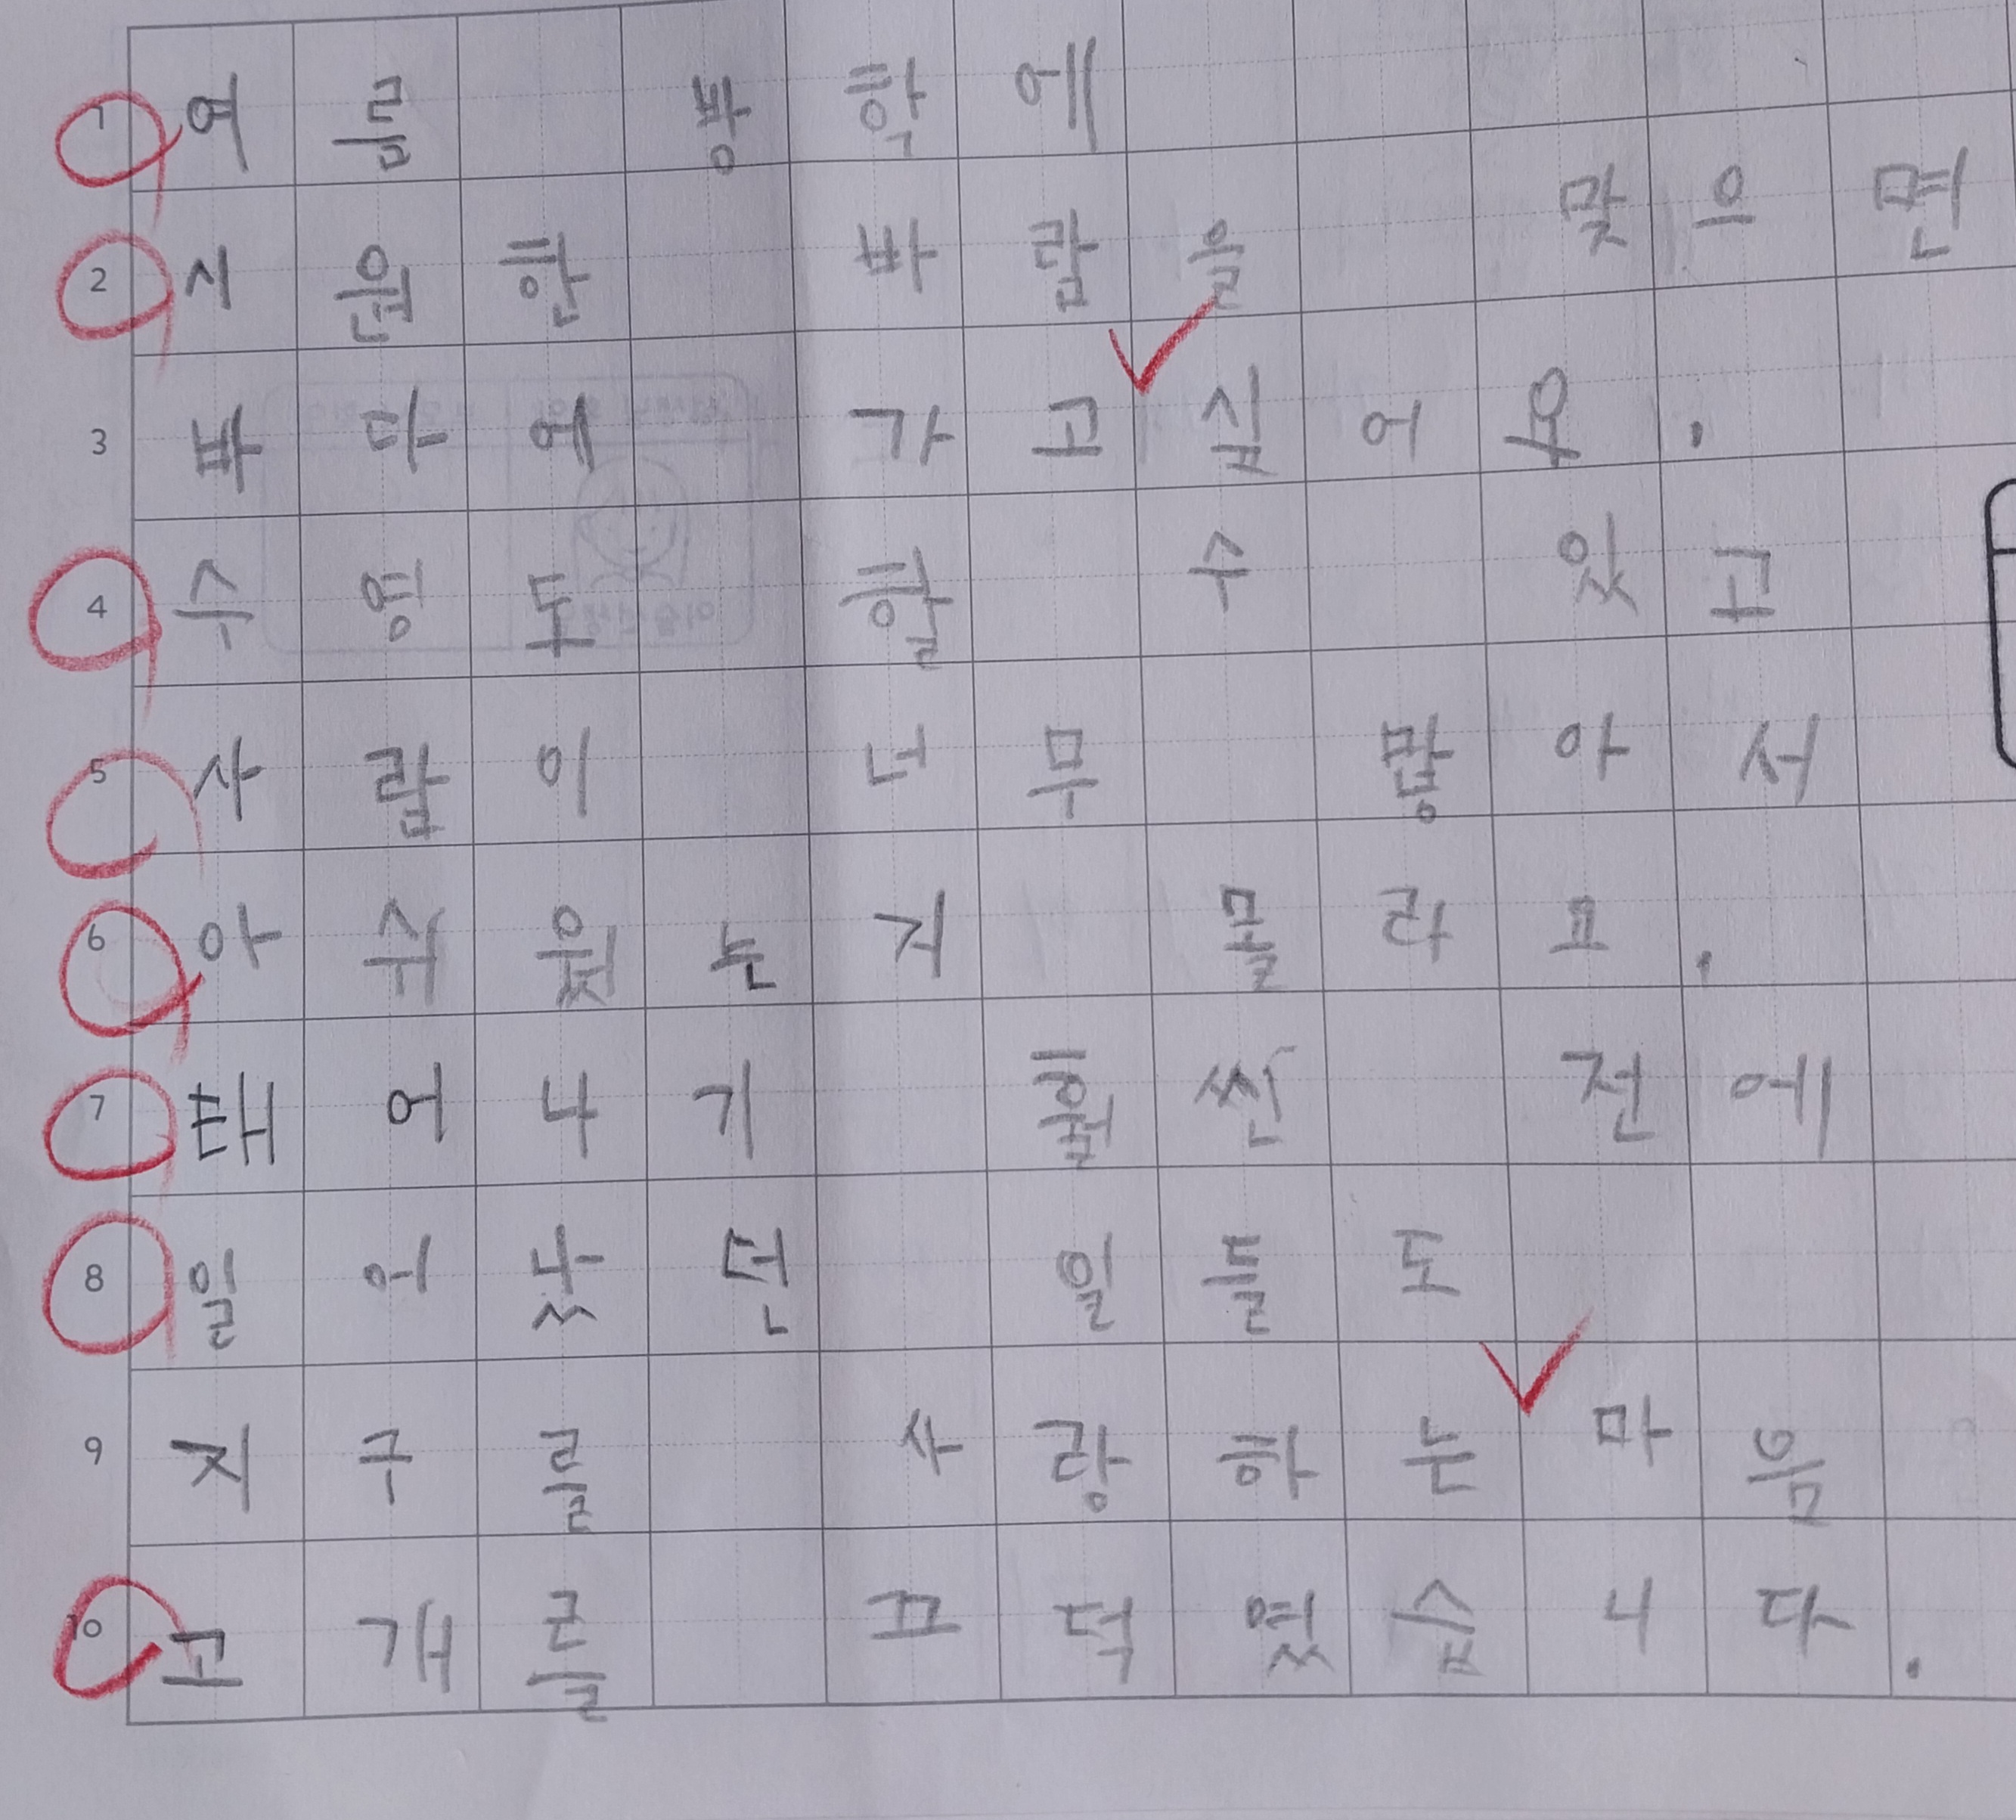 1 여름 방학에
2 시원한 바람을 맞으면
3 바다에 가고싶어요.
4 수영도 할 수 있고
5 사람이 너무 많아서
6 아쉬웠는지 몰라요.
7 태어나기 훨씬 전에
8 일어났던 일들도
9 지구를 사랑하는마음
10 고개를 끄덕였습니다.